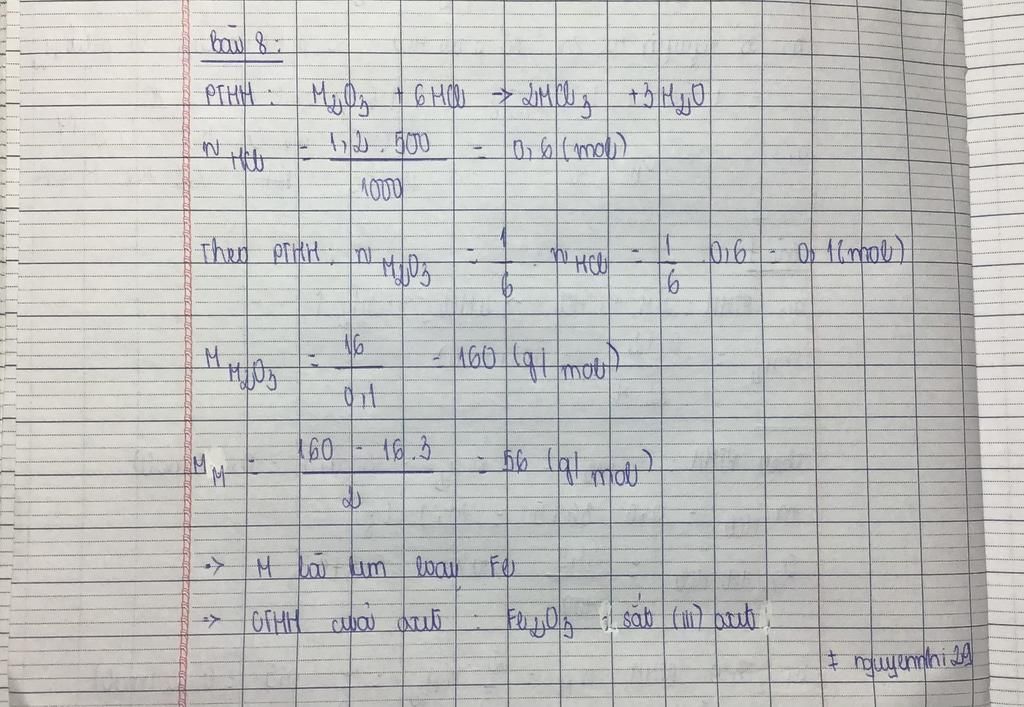 Bài 8:
PTHH: M₂O₃ + 6HCl → 2MCl₃ + 3H₂O
n HCl = 1,2 . 500 / 1000 = 0,6 (mol)
Theo PTHH: n M₂O₃ = 1/6 n HCl = 1/6 . 0,6 = 0,1 (mol)
M M₂O₃ = 16 / 0,1 = 160 (g/mol)
M M = 160 - 16.3 / 2 = 56 (g/mol)
=> M là kim loại Fe
=> CTHH của oxit : Fe₂O₃ : sắt (III) oxit
# nguyennhi29